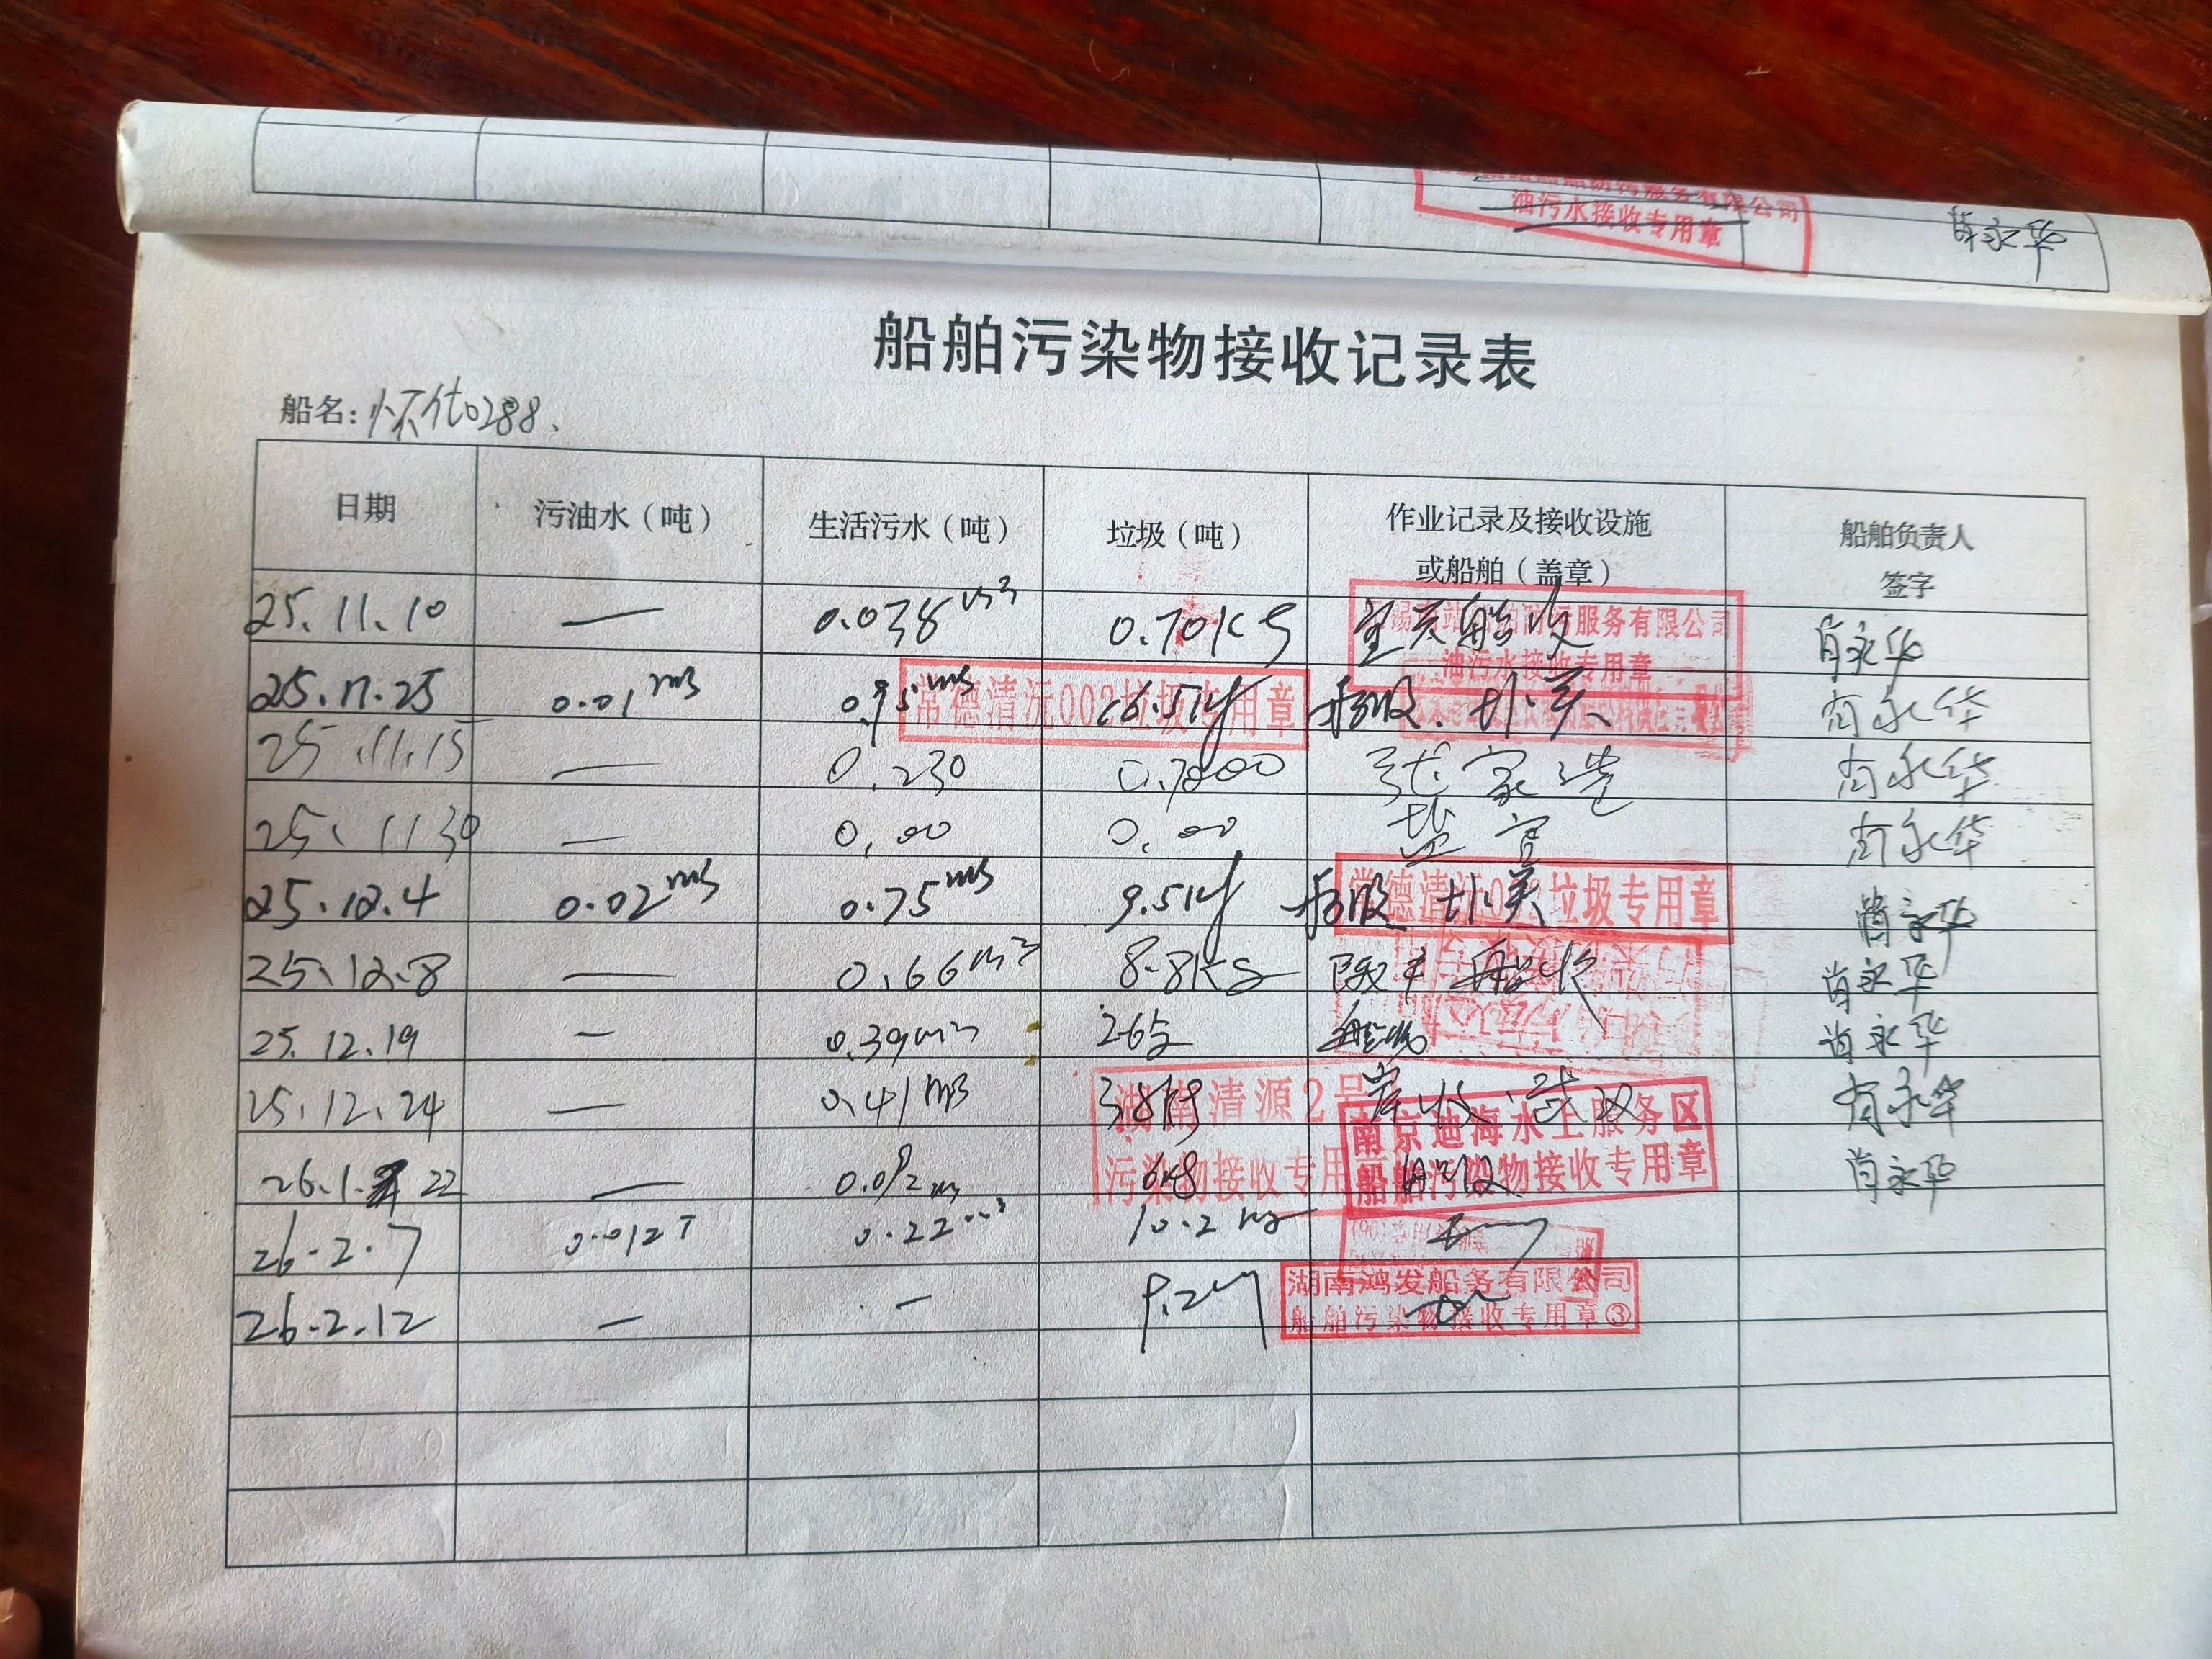 油污水接收专用章
肖永华
船舶污染物接收记录表
船名: 怀化0288
日期 污油水(吨) 生活污水(吨) 垃圾(吨) 作业记录及接收设施或船舶(盖章) 船舶负责人签字
25.11.10 — 0.038m3 0.70KG 船收 肖永华
服务有限公司
油污水接收专用章
25.11.25 0.01m3 0.95m3 肖永华
常德清沅002垃圾专用章
25.11.15 — 0.230 张家港 肖永华
25.11 30 — 0.00 0.00 盐官 肖永华
25.12.4 0.02m3 0.75m3 9.5kg 肖永华
常德清沅002垃圾专用章
25.12.8 — 0.66m3 8.8KG 船收 肖永华
25.12.19 — 0.39m3 肖永华
25.12.24 — 0.41m3 岸收 肖永华
湖南清源2号
污染物接收专用章
南京迪海水上服务区
船舶污染物接收专用章
26.1.22 — 肖永华
26.2.7 0.012T 0.22m3 10.2kg
26.2.12 — — 9.2kg
湖南鸿发船务有限公司
船舶污染物接收专用章③